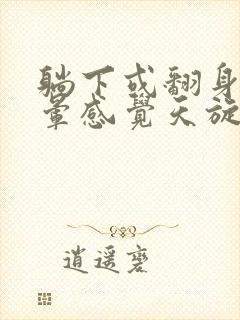 躺下或翻身
暈感覺天旋
逍遥裘